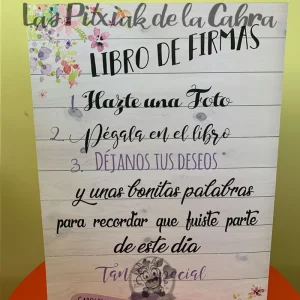 Las Pitxiak de la Cabra
LIBRO DE FIRMAS
1. Hazte una Foto
2. Pégala en el libro
3. DÉJANOS TUS DESEOS
y unas bonitas palabras
para recordar que fuiste parte
de este día
Tan especial